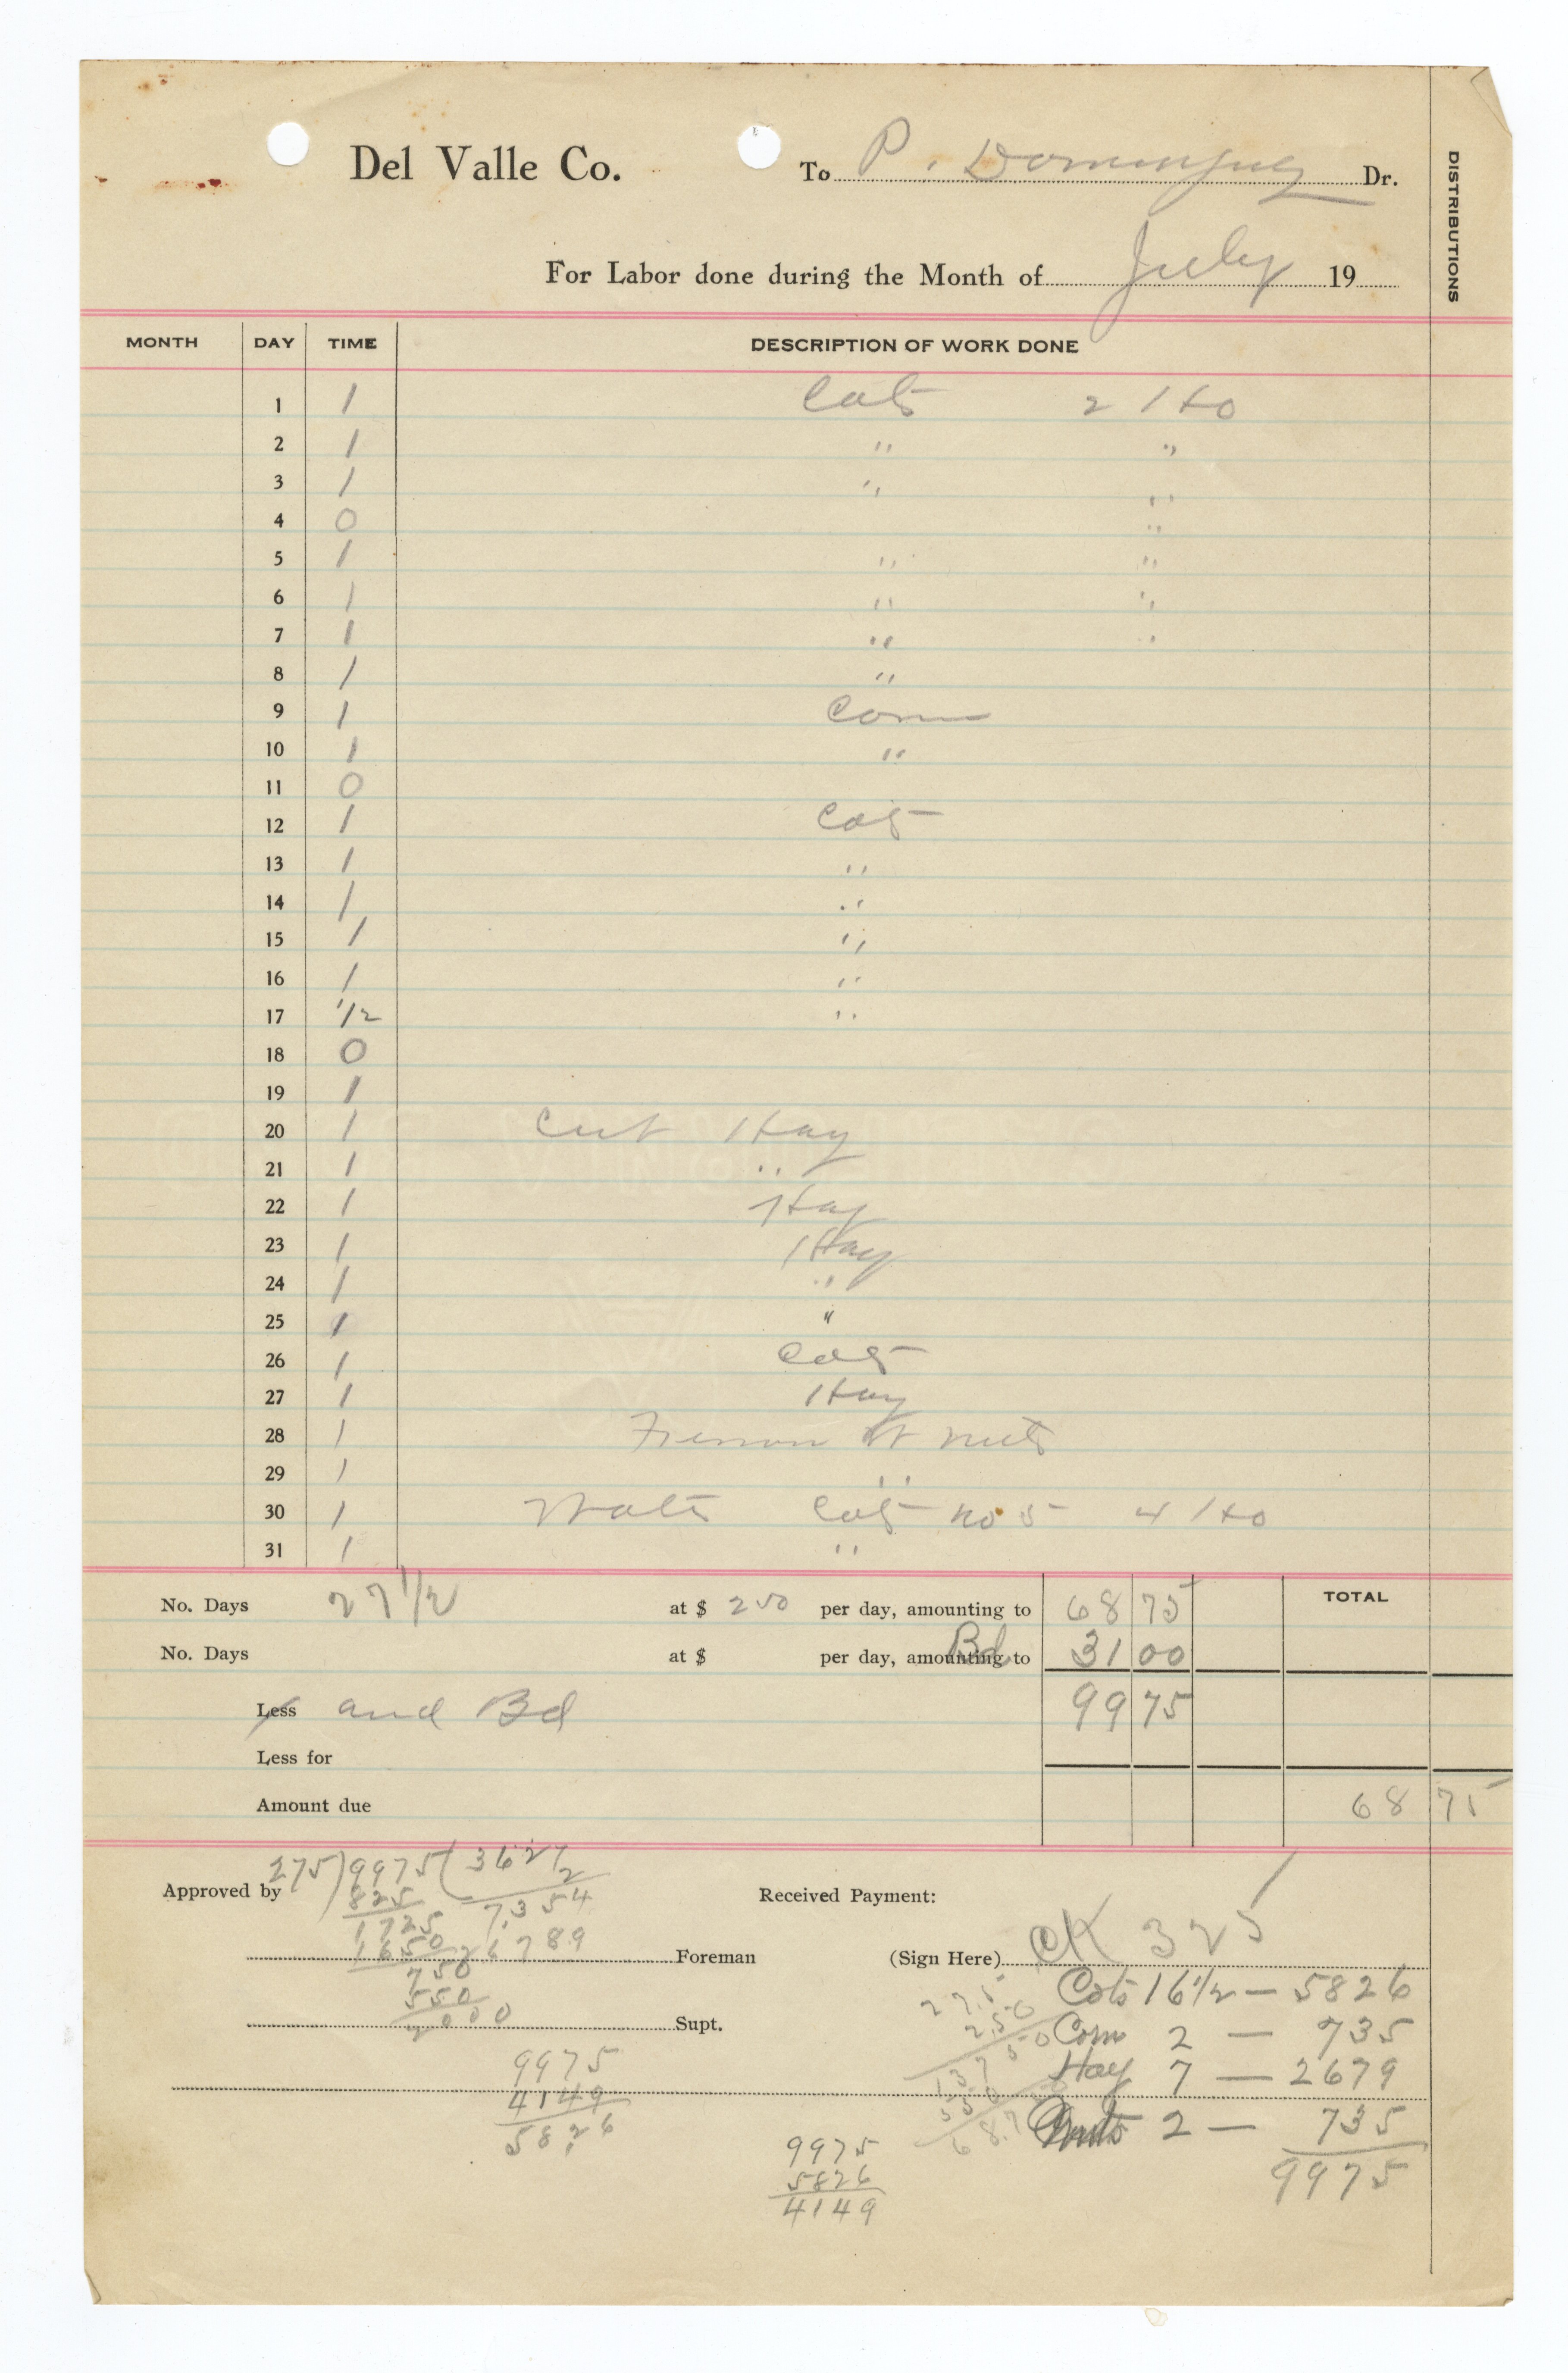 Del Valle Co. To P. Dominguez Dr.
DISTRIBUTIONS
For Labor done during the Month of July 19
MONTH DAY TIME DESCRIPTION OF WORK DONE
1 1 Cots 2 Ho
2 1 " "
3 1 " "
4 0 "
5 1 " "
6 1 " "
7 1 " "
8 1 "
9 1 Corn
10 1 "
11 0
12 1 Cots
13 1 "
14 1 "
15 1 "
16 1 "
17 1/2 "
18 0
19 1
20 1 Cut Hay
21 1 "
22 1 Hay
23 1 Hay
24 1 "
25 1 "
26 1 Cots
27 1 Hay
28 1 W nuts
29 1 "
30 1 Cots no 5 4 Ho
31 1 "
No. Days 27 1/2 at $ 2 50 per day, amounting to 68 75 TOTAL
No. Days at $ per day, amounting to Bd 31 00
Less and Bd 99 75
Less for
Amount due 68 75
275)9975(3627
2
Approved by 825 7,354
Received Payment:
1725
1650 26789
Foreman (Sign Here) CK 325
750
550
2000
Supt.
27.5
2.50
Cots 16 1/2 — 5826
Corn 2 — 735
1375 0
550
68.7
Hay 7 — 2679
Nuts 2 — 735
9975
9975
4149
5826
9975
5826
4149